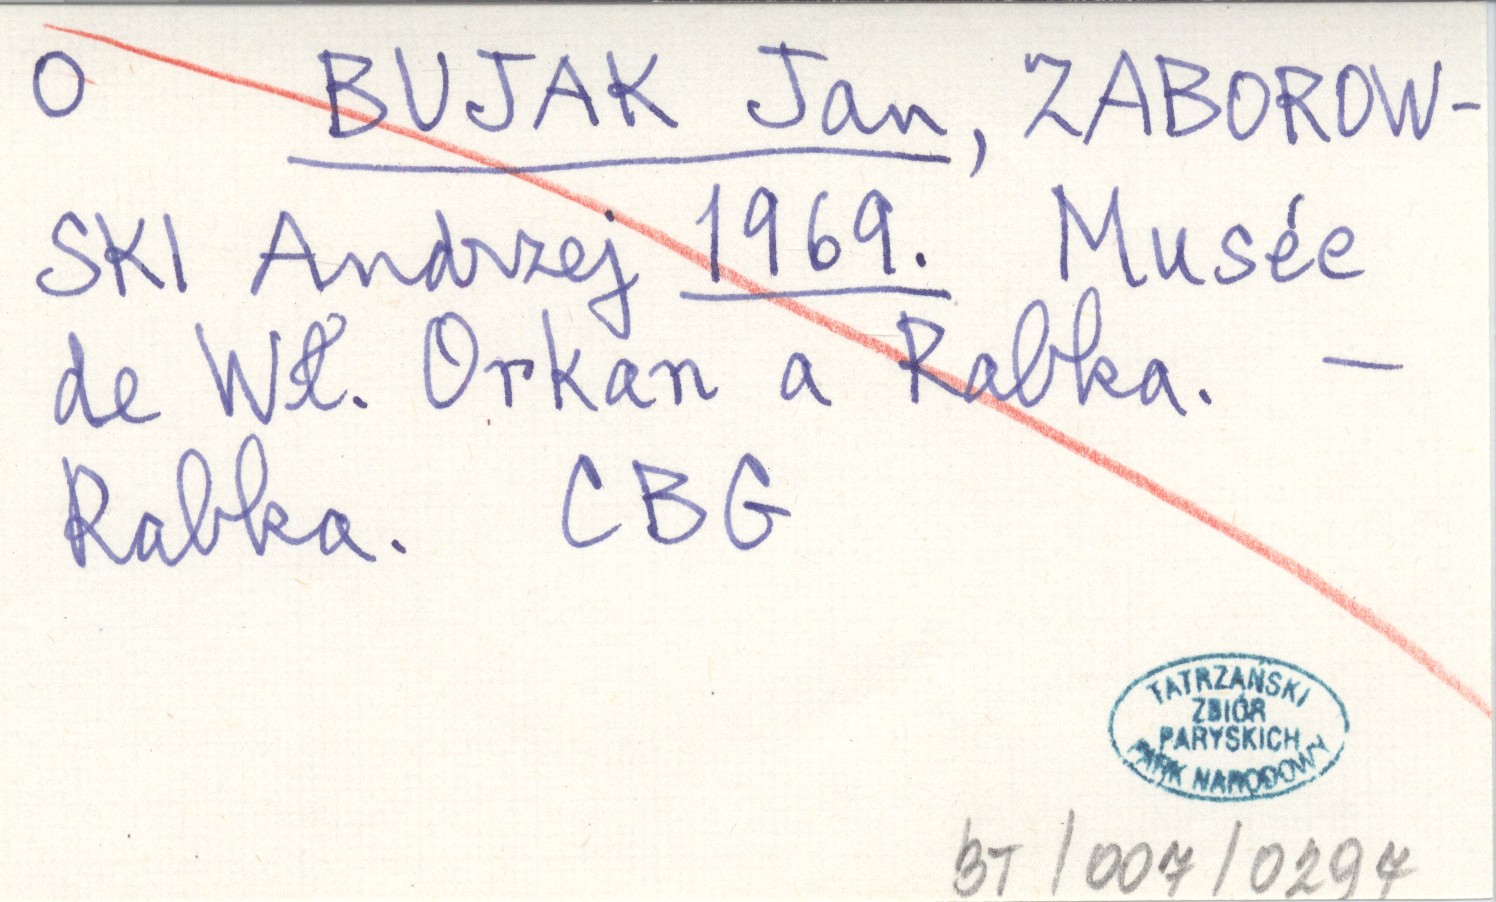 O BUJAK Jan, ZABOROW-
SKI Andrzej 1969. Musée
de Wł. Orkan a Rabka. —
Rabka. CBG
TATRZAŃSKI
ZBIÓR
PARYSKICH
PARK NARODOWY
BT/007/0297